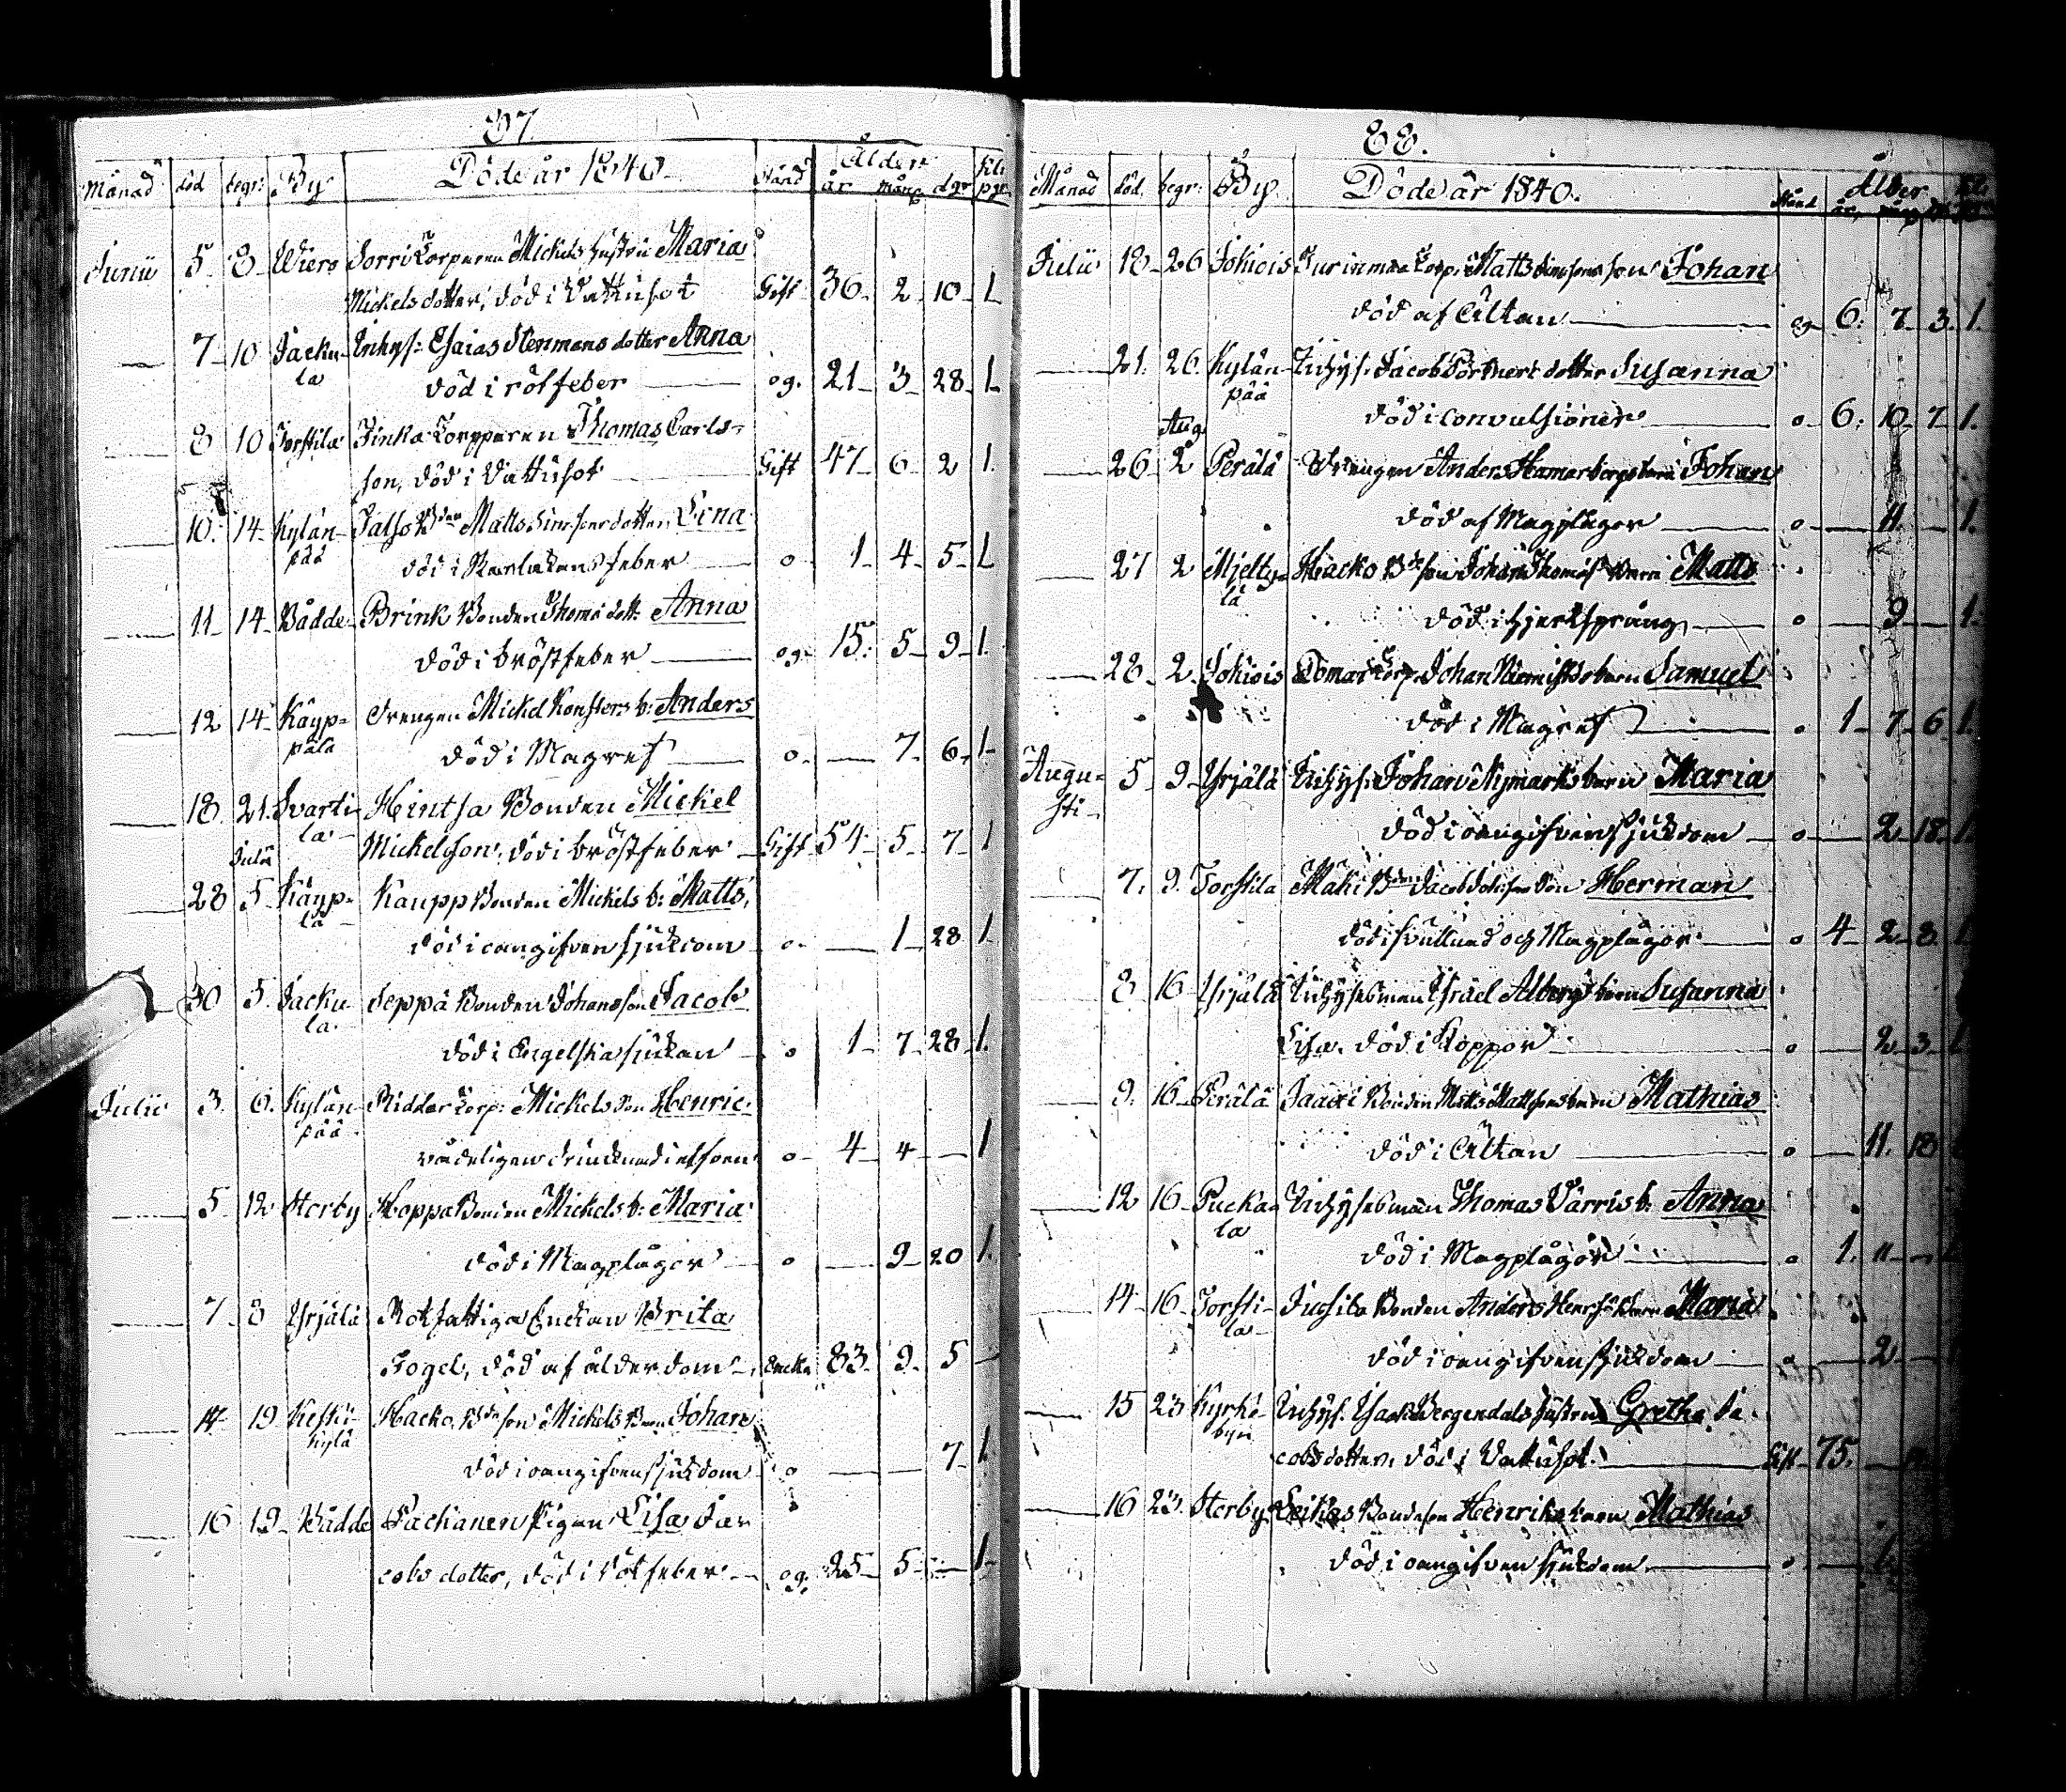 87.
Månad död begr: By Döde år 1840. Stånd Ålder Kl:
år mång d:gr
Junii 5 8 Wiero Torparen Mickels hustru Maria
Mickelsdotter, död i Vattusot Gift 36 2 10 1
7 10 Jacku- Inhys: Esaias Stenmans dotter Anna
la död i rötfeber og. 21 3 28 1
8 10 Torstila Torpparen Thomas Carls-
son, död i Vattusot Gift 47 6 2 1
10 14 Kylän- Matts Simsons dotter
pää död i Skarlakansfeber o 1 4 5 1
11 14 Vådde Brink Bonden Thoms dott: Anna
död i bröstfeber og. 15 5 9 1
12 14 Käyp- Drengen Mickel Konsters b: Anders
pälä död i Magref o 7 6 1
18 21 Svarti- Hintsa Bonden Mickel
la Mickelsson, död i bröstfeber Gift 54 5 7 1
Julii
28 5 Käyp- Kaupp Bonden Mickels b: Matts,
lä död i oangifven sjukdom o 1 28 1
30 5 Jacku- Seppä Bonden Johans son Jacob
la död i Engelska sjukan o 1 7 28 1
Julii 3 6 Kylän- Ridder Torp: Mickels son Henric
pää vådeligen drunknad i elfven o 4 4 1
5 12 Storby Hoppa Bonden Mickels b: Maria
död i Magplågor o 9 20 1
7 8 Yrjälä Rotfattiga Enckan Brita
Fogel, död af ålderdom Encka 83 9 5
14 19 Keski- Hacko Bde son Mickels Barn Johan
kylä död i oangifven sjukdom o 7 1
16 19 Vådde Packanen Pigan Lisa Ja-
cobs dotter, död i rötfeber og. 25 5 1
88.
Månad död. begr: By. Döde år 1840. Stånd Ålder
år
Julii 18 26 Jokiois Torp. Matts Simsons son Johan
död af Ältan og 6 7 3 1
21 26 Kylän- Inhys: Jacob dotter Susanna
pää död i convulsioner o 6 10 7 1
Aug.
26 2 Perälä Drengen Anders Hamarbergs barn Johan
död af Magplågor o 11 1
27 2 Mjelty- Hacko Bde son Johan Thomas Barn Matts
lä död i hjertsprång o 9 1
28 2 Jokiois Torp. Johan barn Samuel
död i Magref o 1 7 6 1
Augu- 5 9 Yrjälä Inhys: Johan Nymarks barn Maria
sti död i oangifven sjukdom o 2 18 1
7 9 Torstila Mäki Bden Jacob Johsson Son Herman
död i svullnad och Magplågor o 4 2 8 1
8 16 Yrjälä Inhysesman Israel Albergs barn Susanna
Lisa, död i Koppor o 2 3
9 16 Perälä Jaacki Bonden Matts Mattsons barn Mathias
död i Ältan o 11 18
12 16 Pucka- Inhysesman Thomas Varris b: Anna
la död i Magplågor o 1 11
14 16 Torsti- Jussila Bonden Anders Barn Maria
la död i oangifven sjukdom o 2
15 23 Kyrko- Inhys: Isack Bergendals hustru Gretha Ja-
byn cobsdotter, död i Vattusot Gift 75
16 23 Storby Leikas Bondeson Henriks barn Mathias
död i oangifven sjukdom o 1